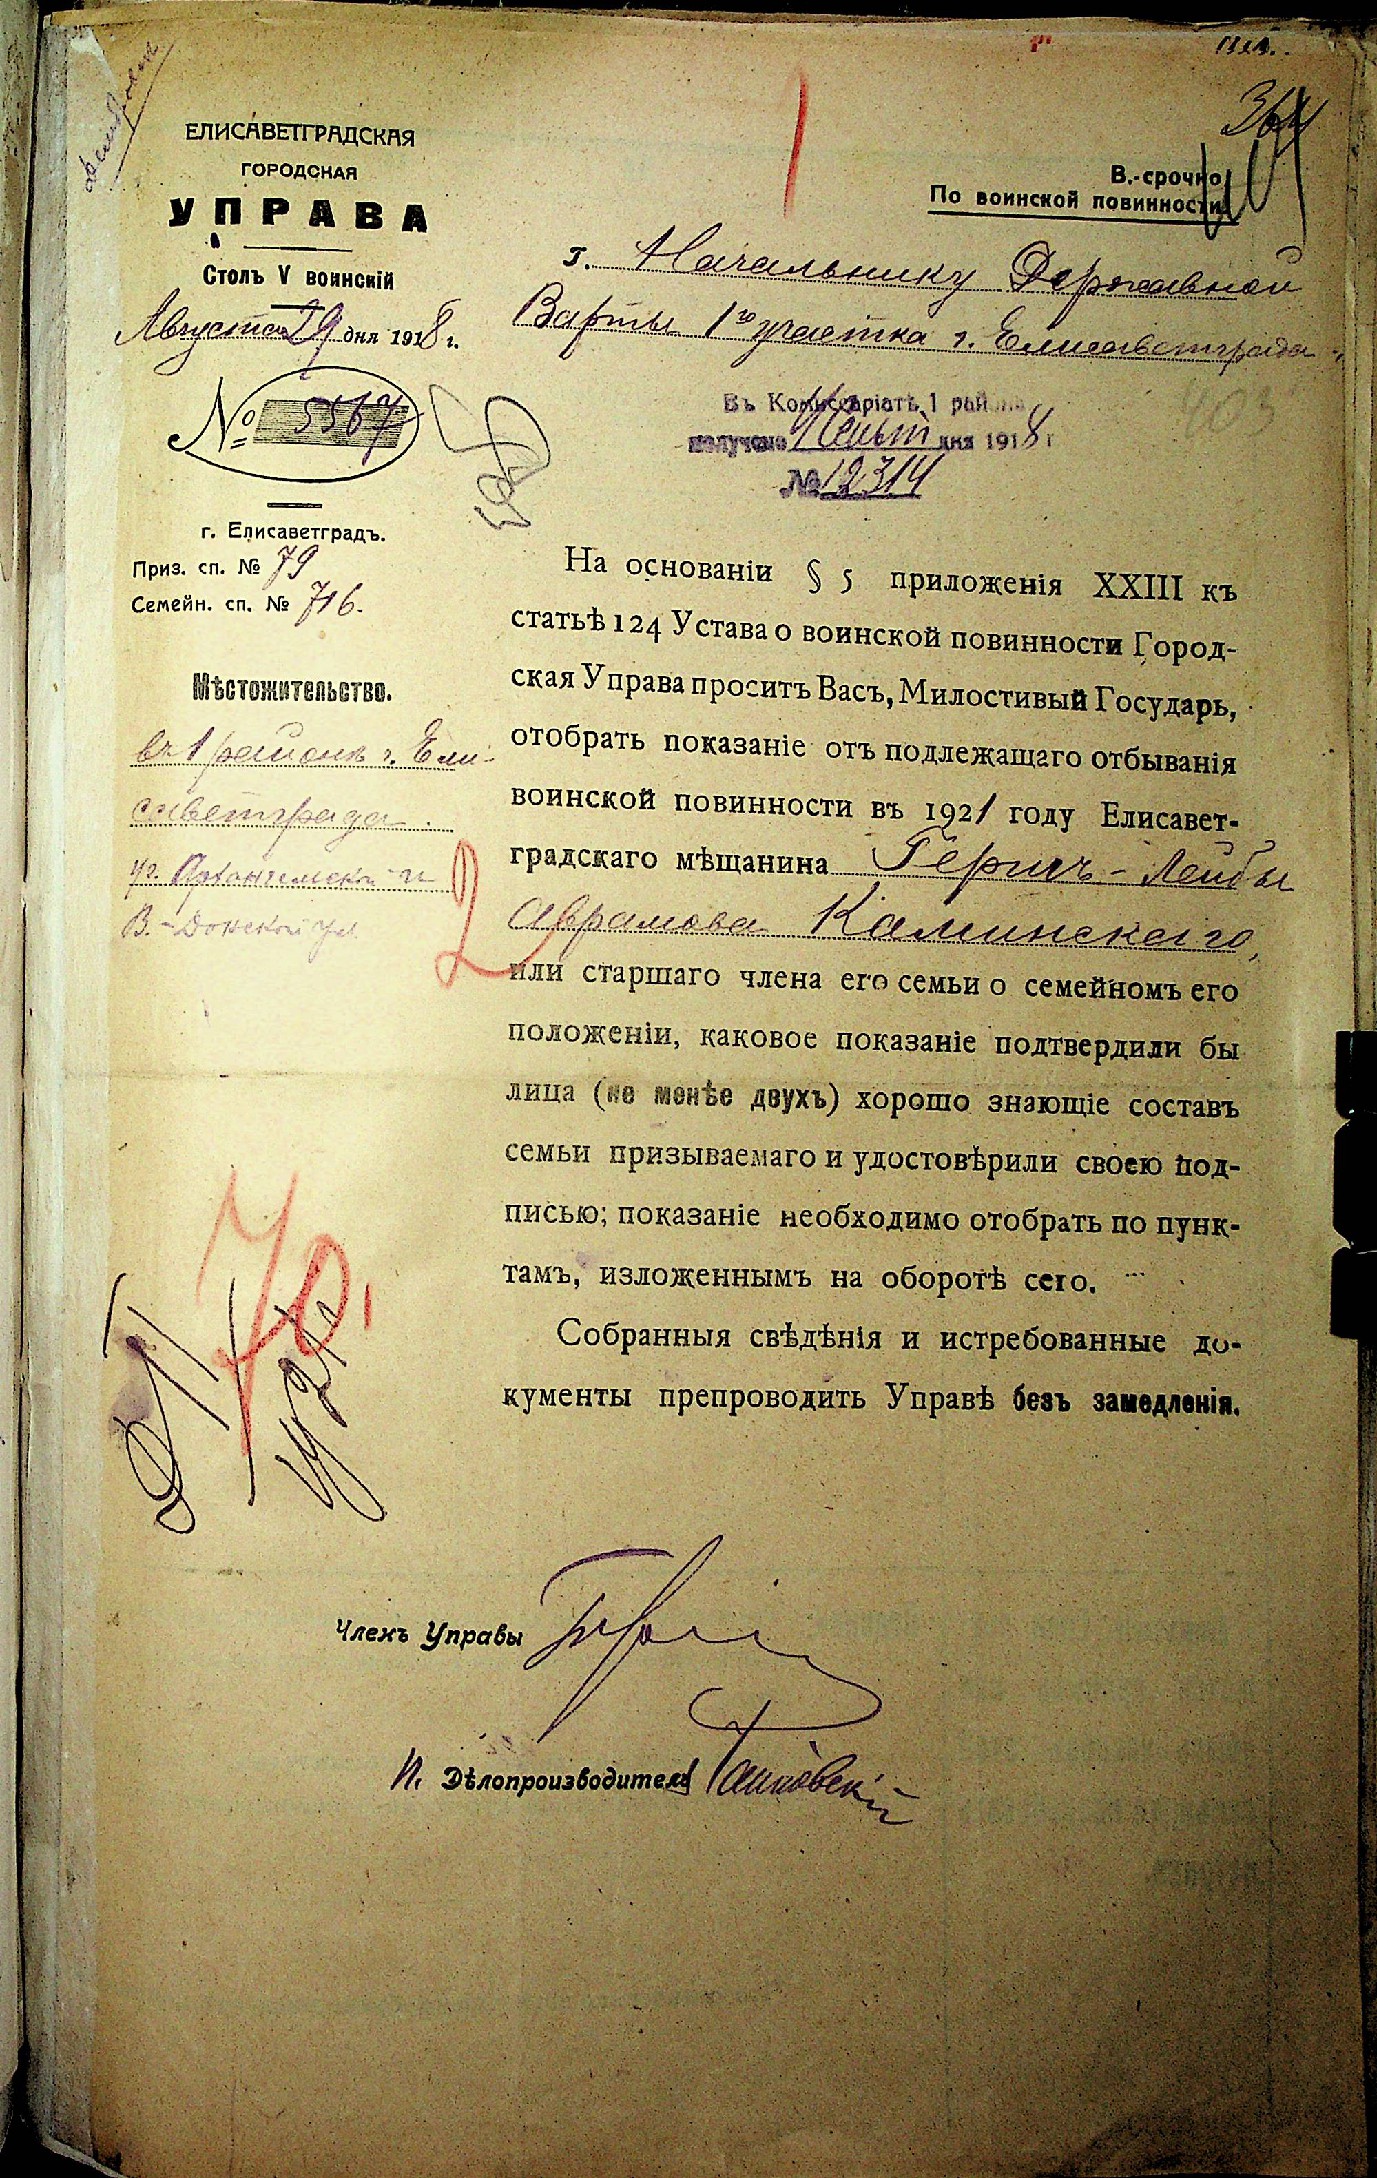 ЕЛИСАВЕТГРАДСКАЯ
ГОРОДСКАЯ
УПРАВА
Столъ V воинскій
Августа 29 дня 1918 г.
№ 5567
г. Елисаветградъ.
Приз. сп. № 79
Семейн. сп. № 716.
Мѣстожительство.
въ 1 районѣ г. Ели-
саветграда
уг. Архангельской и
В.-Донской ул.
364
В.-срочно
По воинской повинности
г. Начальнику Державной
Варты 1го участка г. Елисаветграда
403
Въ Комиссаріатѣ 1 района
получено дня 1918 г
№ 12314
На основаніи § 5 приложенія XXIII къ
статьѣ 124 Устава о воинской повинности Город-
ская Управа проситъ Васъ, Милостивый Государь,
отобрать показаніе отъ подлежащаго отбыванія
воинской повинности въ 1921 году Елисавет-
градскаго мѣщанина Герша-Лейбы
Аврамова Каминскаго,
или старшаго члена его семьи о семейномъ его
положеніи, каковое показаніе подтвердили бы
лица (не менѣе двухъ) хорошо знающіе составъ
семьи призываемаго и удостовѣрили своею под-
писью; показаніе необходимо отобрать по пунк-
тамъ, изложеннымъ на оборотѣ сего.
Собранныя свѣдѣнія и истребованные до-
кументы препроводить Управѣ безъ замедленія.
2
70.
Членъ Управы
И. Дѣлопроизводителя